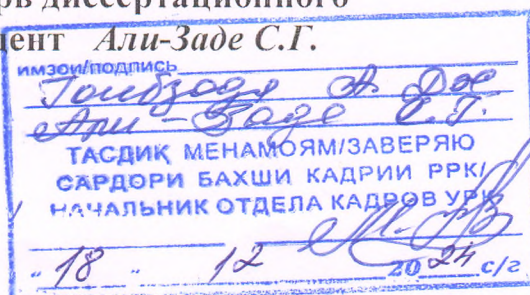 рь диссертационного
цент Али-Заде С.Г.
имзои/подпись
Гоибзода А. Дж
Али-Заде С.Г.
ТАСДИҚ МЕНАМОЯМ/ЗАВЕРЯЮ
САРДОРИ БАХШИ КАДРИИ РРК/
НАЧАЛЬНИК ОТДЕЛА КАДРОВ УРК
" 18 " 12 2024 с/г